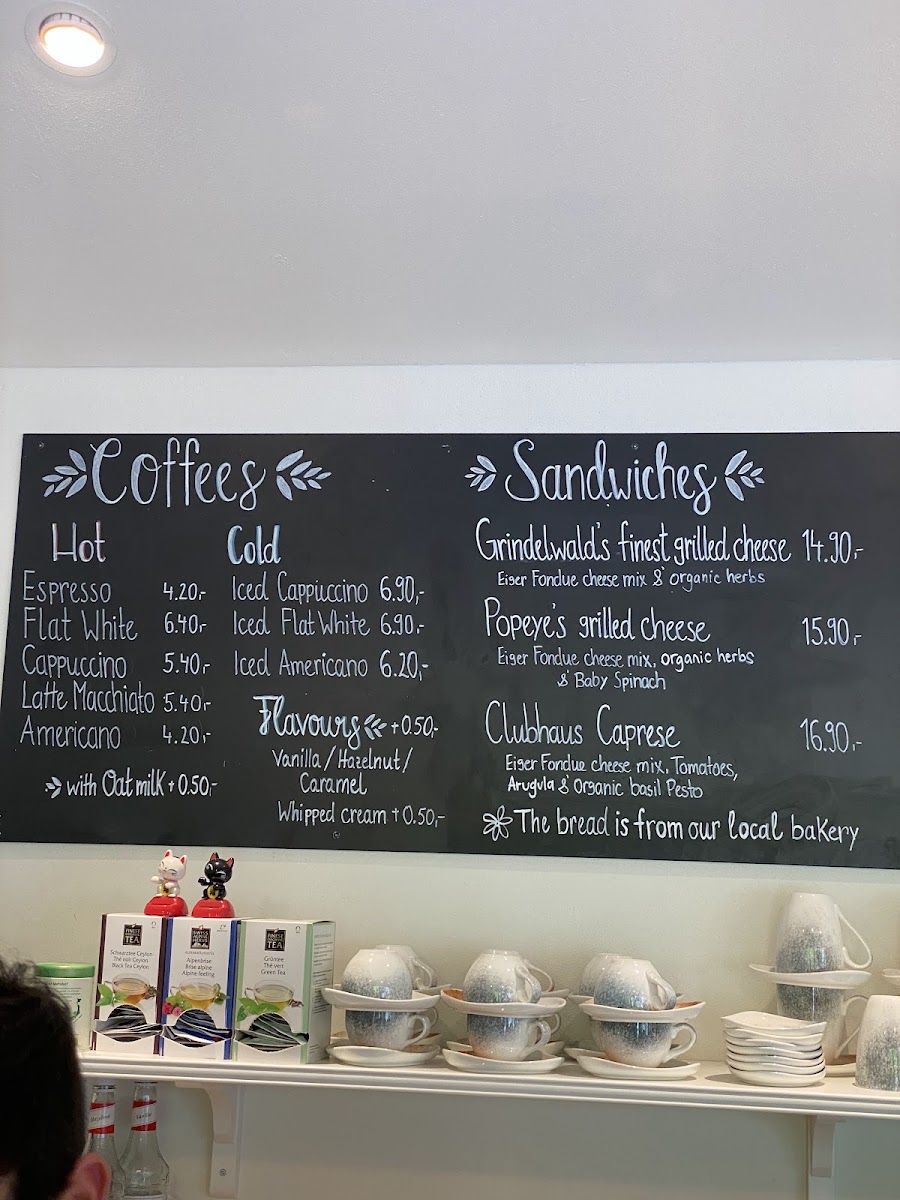 Coffees
Hot
Espresso 4.20,-
Flat White 6.40,-
Cappuccino 5.40,-
Latte Macchiato 5.40,-
Americano 4.20,-
with Oat milk + 0.50,-
Cold
Iced Cappuccino 6.90,-
Iced Flat White 6.90,-
Iced Americano 6.20,-
Flavours +0.50,-
Vanilla / Hazelnut /
Caramel
Whipped cream + 0.50,-
Sandwiches
Grindelwald's finest grilled cheese 14.90,-
Eiger Fondue cheese mix & organic herbs
Popeye's grilled cheese 15.90,-
Eiger Fondue cheese mix, organic herbs
& Baby Spinach
Clubhaus Caprese 16.90,-
Eiger Fondue cheese mix, Tomatoes,
Arugula & Organic basil Pesto
The bread is from our local bakery
FINEST
TEA
Schwarztee Ceylon
Thé noir Ceylon
Black Tea Ceylon
SWISS
ALPINE
HERBS
Alpenbrise
Brise alpine
Alpine feeling
FINEST
TEA
Grüntee
Thé vert
Green Tea